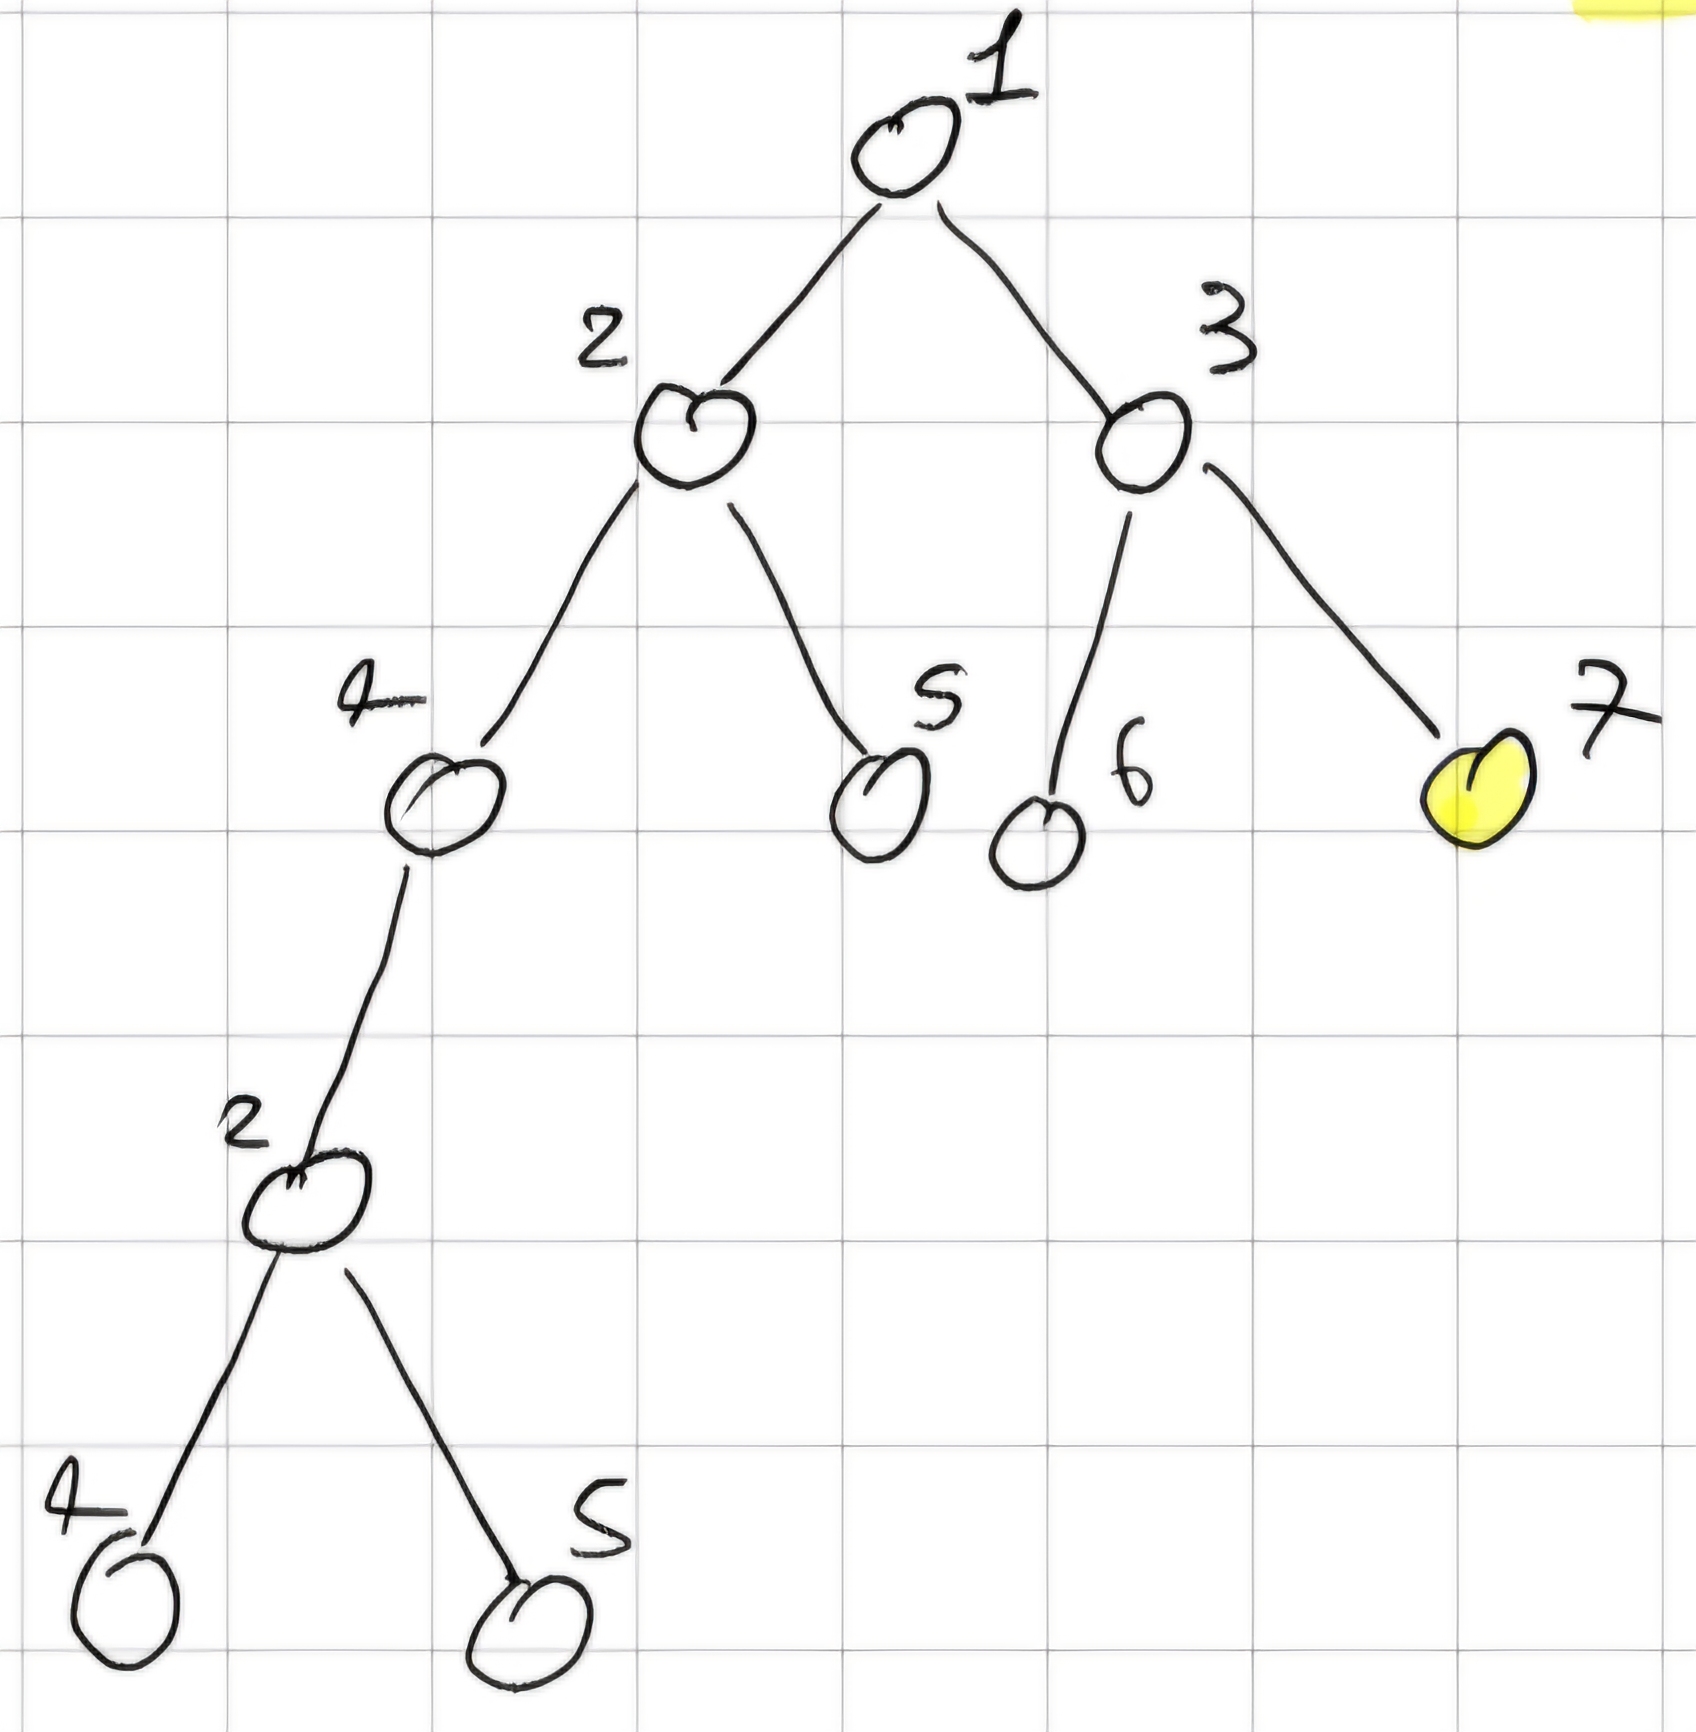 1
2 3
4 5 6 7
2
4 5